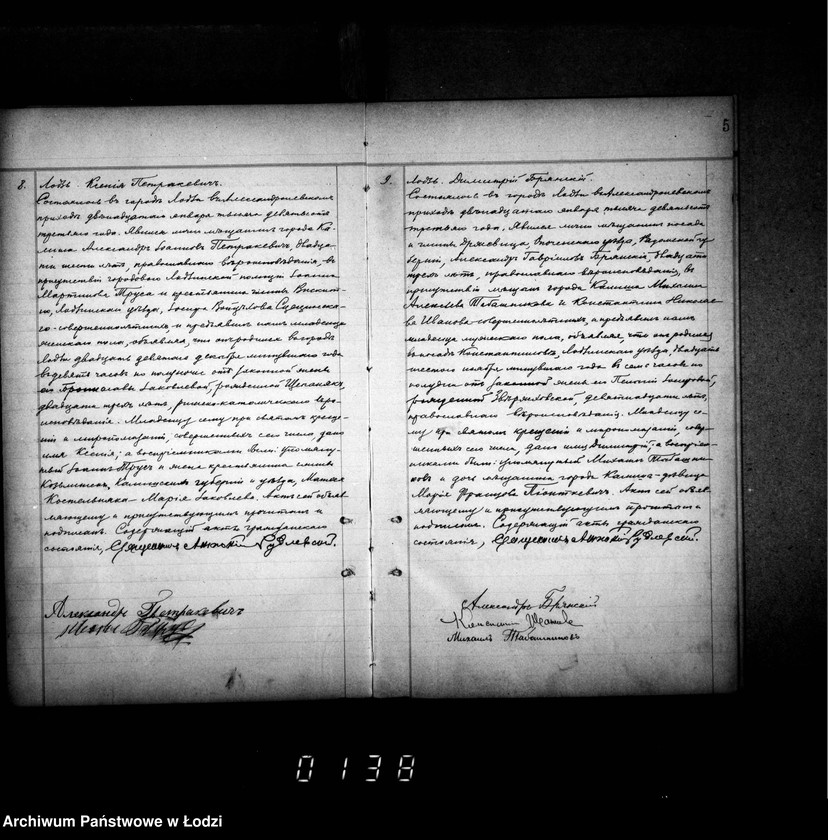 5
8.
Лодзь. Ксенія Петракевичъ.
Состоялось въ городѣ Лодзи въ Александроневскомъ
приходѣ двѣнадцатаго января тысяча девятьсотъ
третьяго года. Явился лично мѣщанинъ города Ка-
лиша Александръ Іоанновъ Петракевичъ, двадца-
ти шести лѣтъ, православнаго вѣроисповѣданія, въ
присутствіи городового Лодзинской полиціи Іоанна
Мартинова Труса и крестьянина гмины
Лодзинскаго уѣзда, Іосифа
совершеннолѣтнихъ, и предъявилъ намъ младенца
женскаго пола, объявляя, что онъ родился въ городѣ
Лодзи двадцать девятаго декабря минувшаго года
въ девять часовъ по полуночи отъ законной жены
его Брониславы Яковлевой, рожденной
двадцати трехъ лѣтъ, римско-католическаго вѣро-
исповѣданія. Младенцу сему при святомъ креще-
ніи и мѵропомазаніи, совершенныхъ сего числа, дано
имя Ксенія; а воспріемниками были: упомяну-
тый Іоаннъ Трусъ и жена крестьянина гмины
Козьминекъ, Калишской губерніи и уѣзда,
Марія Яковлева. Актъ сей объяв-
ляющему и присутствующимъ прочитанъ и
подписанъ. Содержащій акты гражданскаго
состоянія, Священникъ Антоній Рудлевскій.
Александръ Петракевичъ
9.
Лодзь. Димитрій Брянскій.
Состоялось въ городѣ Лодзи въ Александроневскомъ
приходѣ двѣнадцатаго января тысяча девятьсотъ
третьяго года. Явился лично мѣщанинъ посада
и гмины Држевица, Опоченскаго уѣзда, Радомской гу-
берніи, Александръ Гавріиловъ Брянскій, двадцати
трехъ лѣтъ, православнаго вѣроисповѣданія, въ
присутствіи мѣщанъ города Калиша Михаила
Алексѣева Табашникова и Константина Николае-
ва Иванова совершеннолѣтнихъ, и предъявилъ намъ
младенца мужескаго пола, объявляя, что онъ родился
въ посадѣ Константиновѣ, Лодзинскаго уѣзда, двадцать
шестого ноября минувшаго года въ семь часовъ по
полудни отъ законной жены его
рожденной девятнадцати лѣтъ,
православнаго вѣроисповѣданія. Младенцу се-
му при святомъ крещеніи и мѵропомазаніи, совер-
шенныхъ сего числа, дано имя Димитрій; а воспріем-
никами были: упомянутый Михаилъ Табашни-
ковъ и дочь мѣщанина города Калиша дѣвица
Марія Францова Піонткевичъ. Актъ сей объяв-
ляющему и присутствующимъ прочитанъ и
подписанъ. Содержащій акты гражданскаго
состоянія, Священникъ Антоній Рудлевскій.
Александръ Брянскій
Константинъ Ивановъ
Михаилъ Табашниковъ
0138
Archiwum Państwowe w Łodzi